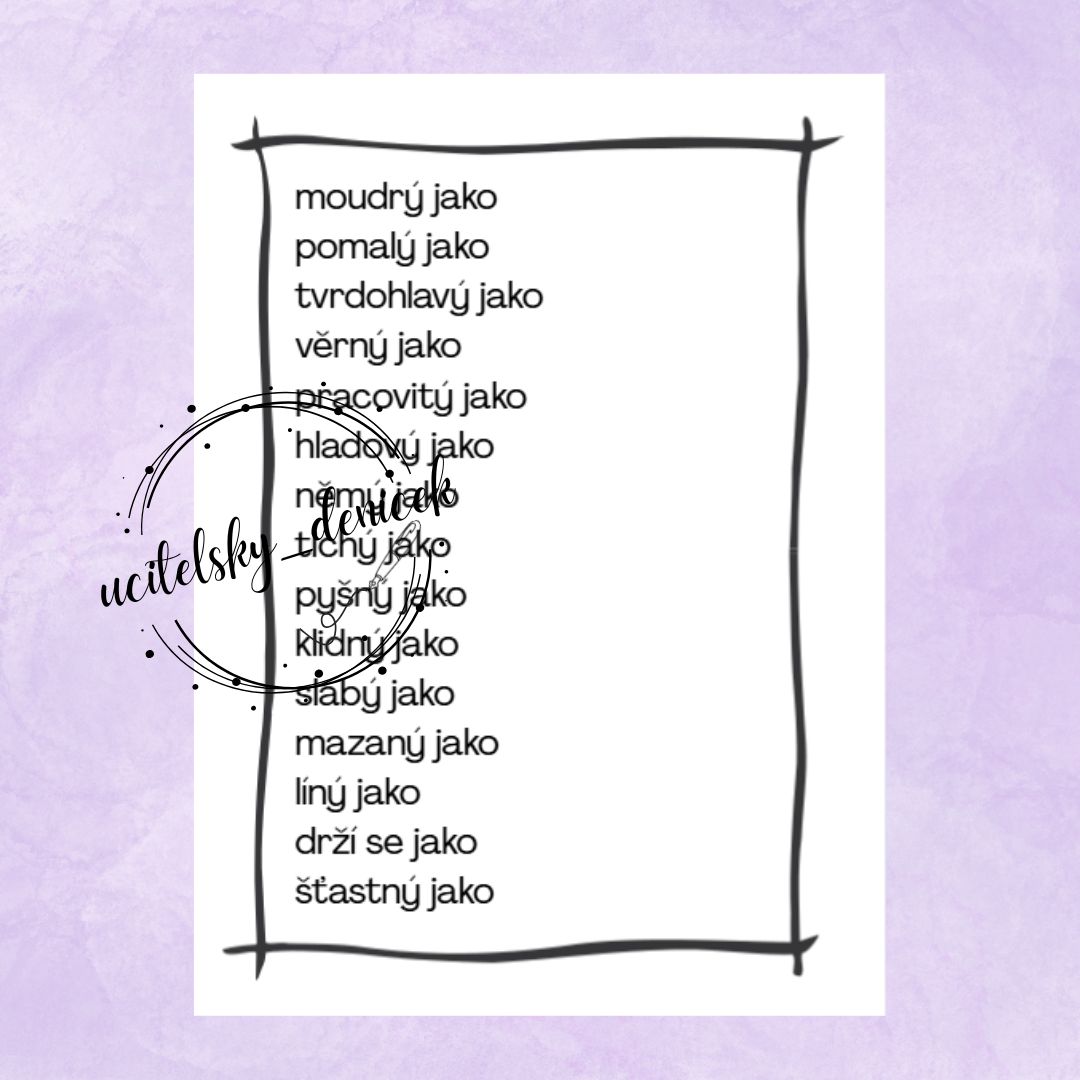 moudrý jako
pomalý jako
tvrdohlavý jako
věrný jako
pracovitý jako
hladový jako
němý jako
tichý jako
pyšný jako
klidný jako
slabý jako
mazaný jako
líný jako
drží se jako
šťastný jako
ucitelsky_denicek